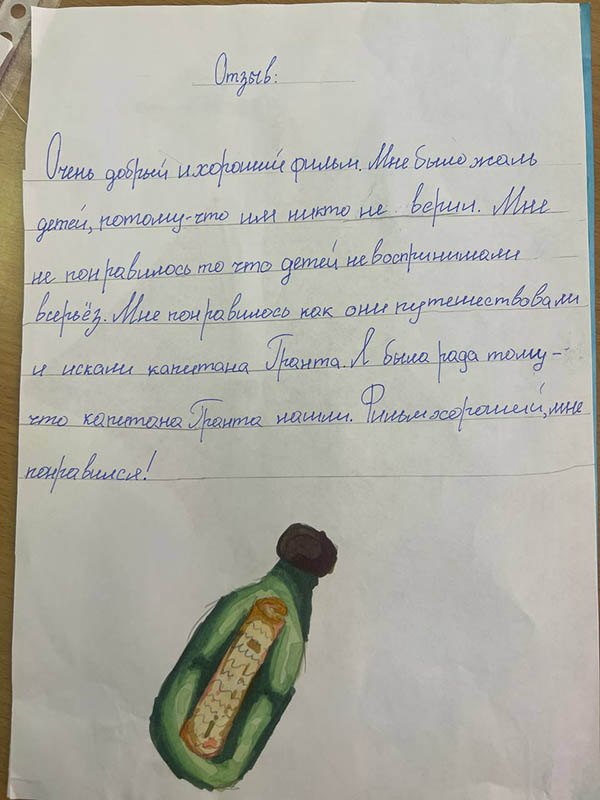 Отзыв:
Очень добрый и хороший фильм. Мне было жаль
детей, потому-что им никто не верил. Мне
не понравилось то что детей не воспринимали
всерьёз. Мне понравилось как они путешествовали
и искали капитана Гранта. Я была рада тому-
что капитана Гранта нашли. Фильм хороший, мне
понравился!